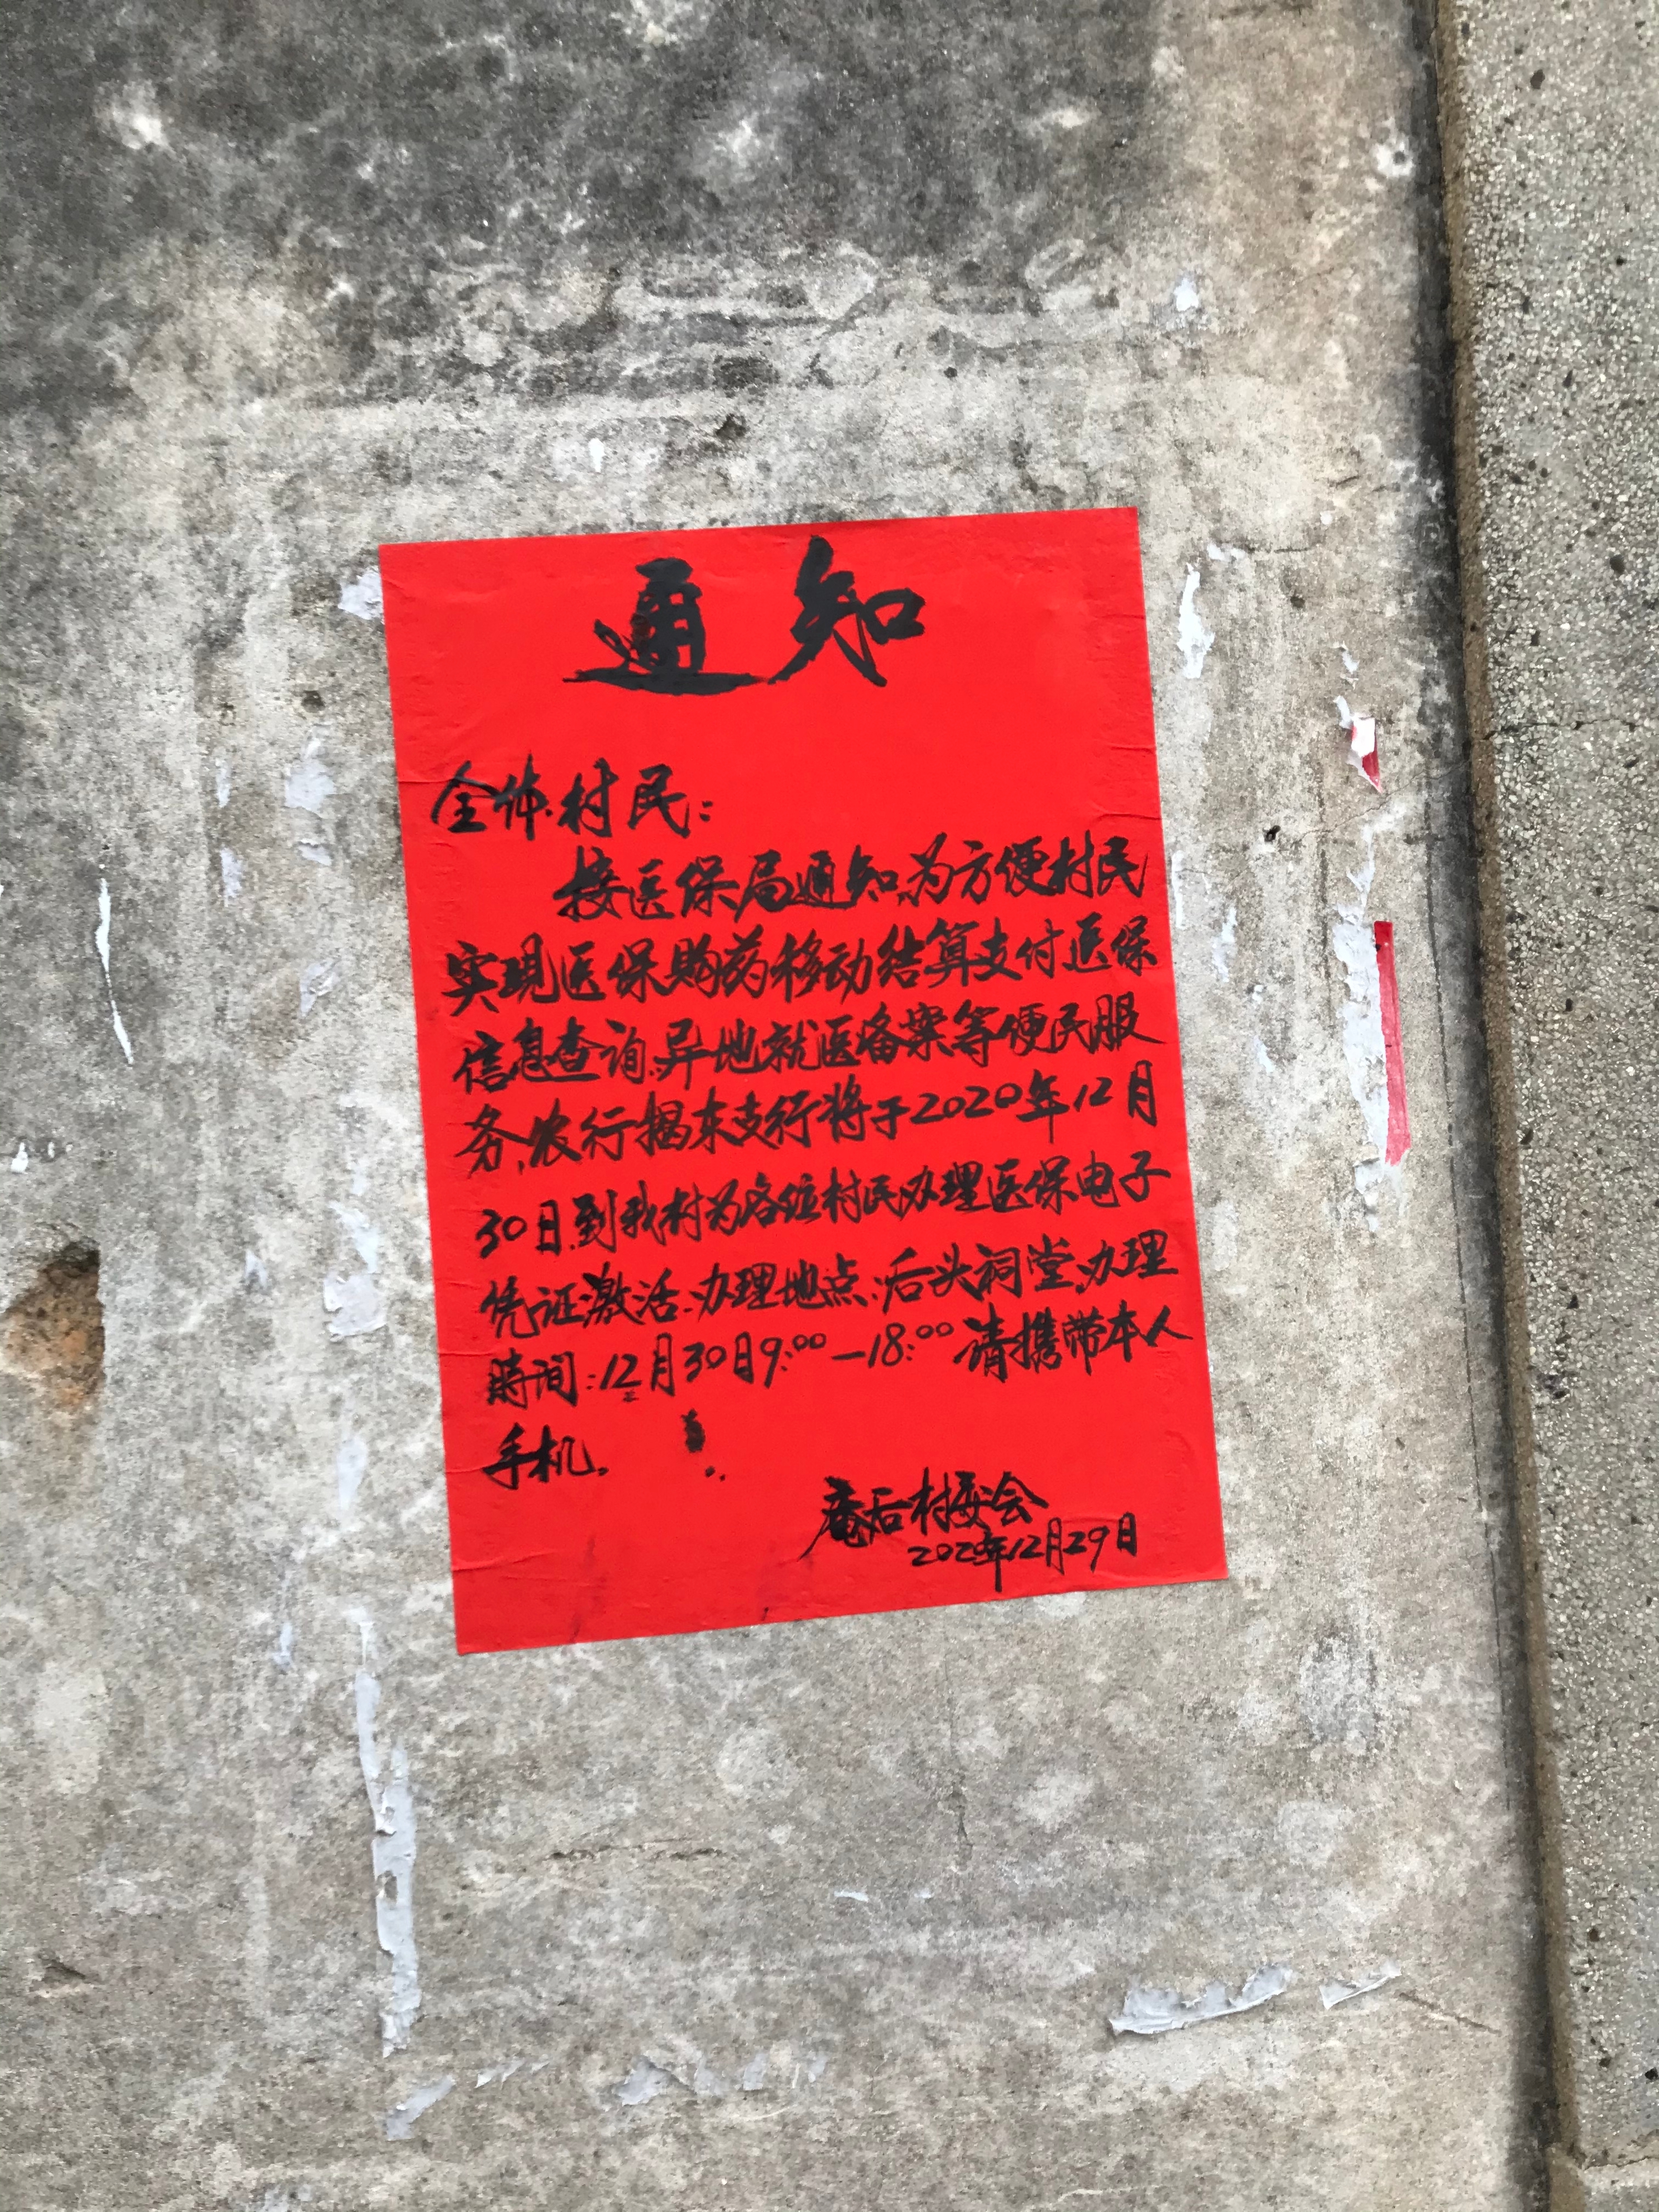 通知
全体村民：
接医保局通知，为方便村民
实现医保购药移动结算支付医保
信息查询、异地就医备案等便民服
务，农行揭东支行将于2020年12月
30日到我村为各位村民办理医保电子
凭证激活．办理地点：后头祠堂，办理
時间：12月30日9:00—18:00 请携带本人
手机．
庵后村委会
2020年12月29日